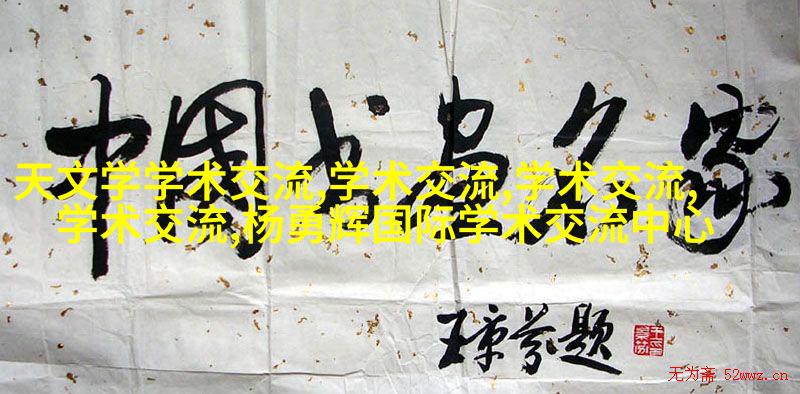 中国书画名家
天文学学术交流,学术交流,学术交流,
学术交流,杨勇辉国际学术交流中心
王景芬题
无为斋 52wwz.cn